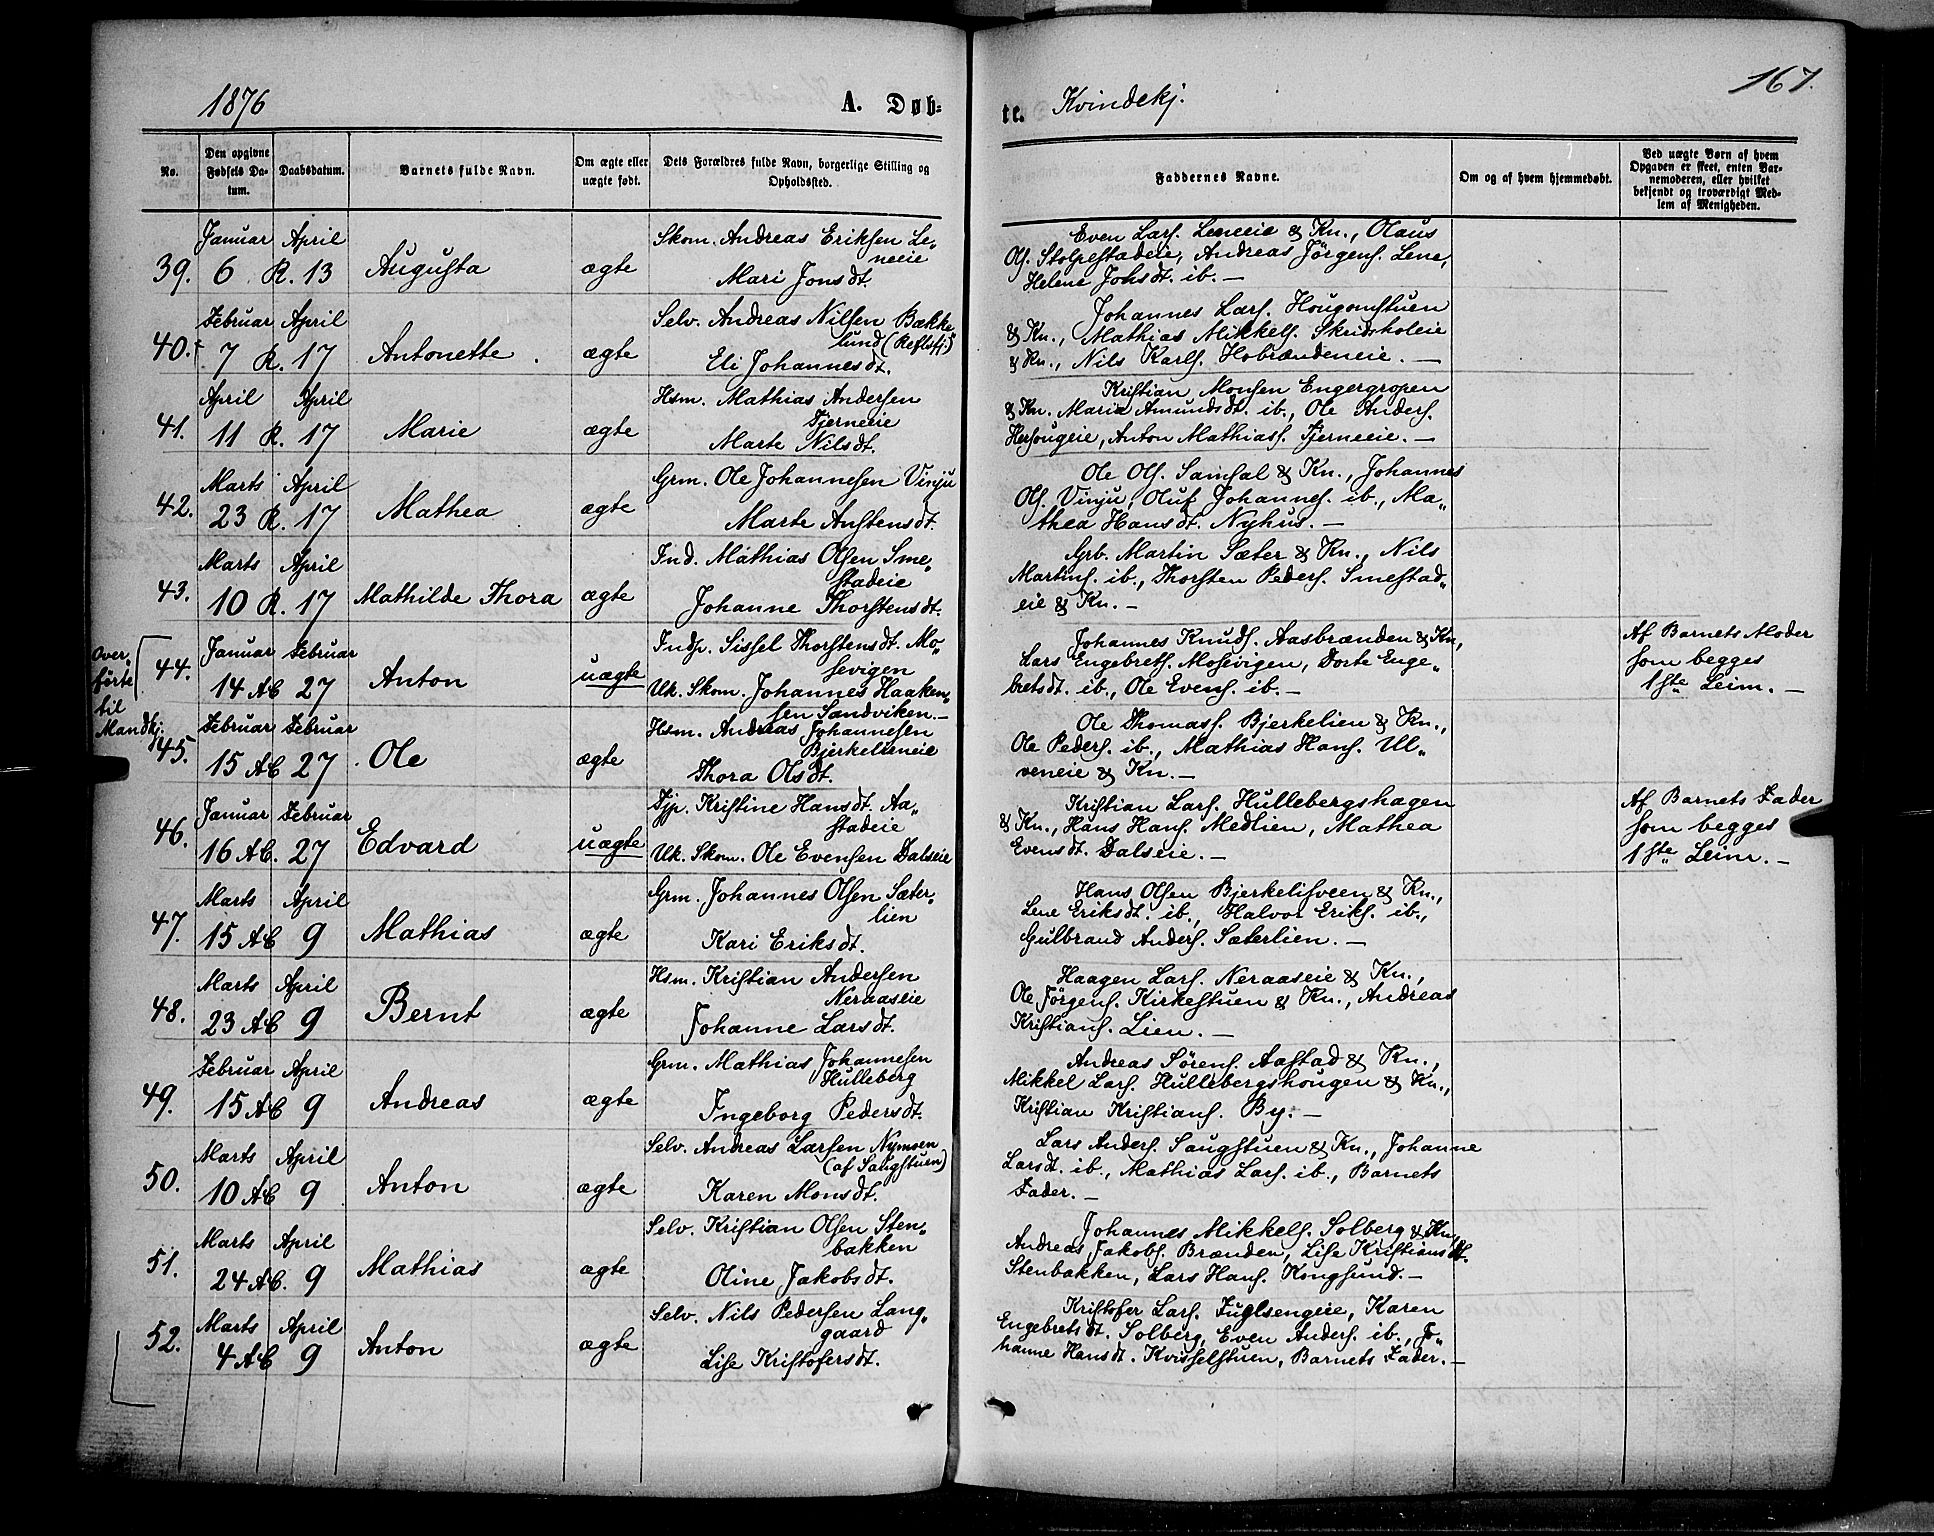 1876
A. Døb-
te. Kvindekj.
167.
No.
Den opgivne Fødsels Da-
tum.
Daabsdatum.
Barnets fulde Navn.
Om ægte eller
uægte født.
Dets Forældres fulde Navn, borgerlige Stilling og
Opholdssted.
Faddernes Navne.
Om og af hvem hjemmedøbt.
Ved uægte Børn af hvem
Opgaven er skeet, enten Bar-
nemoderen, eller hvilket
bekjendt og troværdigt Med-
lem af Menigheden.
39. Januar 6 April R. 13 Augusta ægte
Skom. Andreas Eriksen Le-
neeie
Mari Jonsdt.
Even Lars. Leneeie & Kn., Olaus
Ols. Stolpestadeie, Andreas Jörgens. Lene,
Helene Johsdt. ib. —
40. Februar 7 April R. 17 Antonette ægte
Selv. Andreas Nilsen Bække
lund
Eli Johannesdt.
Johannes Lars. Hougomstuen
& Kn., Mathias Mikkels. Skridsholeie
& Kn., Nils Karls. Hobrændeneie. —
41. April 11 April R. 17 Marie ægte
Hsm. Mathias Andersen
Tjerneeie
Marte Nilsdt.
Kristian Monsen Engergropen
& Kn. Marie Amundsdt. ib., Ole Anders.
Hersougeie, Anton Mathiass. Tjerneeie. —
42. Marts 23 April R. 17 Mathea ægte
Grm. Ole Johannesen Vinju
Marte Anstensdt.
Ole Ols. Samsal & Kn., Johannes
Ols. Vinju, Oluf Johannes. ib., Ma-
thea Hansdt. Nyhus. —
43. Marts 10 April R. 17 Mathilde Thora ægte
Ind. Mathias Olsen Sme-
stadeie
Johanne Thorstensdt.
Grb. Martin Sæter & Kn., Nils
Martins. ib., Thorsten Peders. Smestad-
eie & Kn. —
Over-
förte
til
Mandkj:
44. Januar 14 AC Februar 27 Anton uægte
Indp. Sissel Thorstensdt. Mo-
sevigen
Uk. Skom. Johannes Haaken-
sen Sandviken. —
Johannes Knuds. Aasbrænden & Kn,
Lars Engebrets. Mosevigen, Dorte Enge-
bretsdt. ib., Ole Evens. ib. —
Af Barnets Moder
som begges
1ste Leim. —
45. Februar 15 AC Februar 27 Ole ægte
Hsm. Andreas Johannesen
Bjerkelieneie
Thora Olsdt.
Ole Thomass. Bjerkelien & Kn.,
Ole Peders. ib., Mathias Hans. Ul-
veneie & Kn. —
46. Januar 16 AC. Februar 27 Edvard uægte
Tjp. Kristine Hansdt. Aa-
stadeie
Uk. Skom. Ole Evensen Dalseie
Kristian Lars. Hullebergshagen
& Kn., Hans Hans. Medlien, Mathea
Evensdt. Dalseie. —
Af Barnets Fader
som begges
1ste Leim. —
47. Marts 15 AC April 9 Mathias ægte
Grm. Johannes Olsen Sæter-
lien
Kari Eriksdt.
Hans Olsen Bjerkelisveen & Kn.,
Lene Eriksdt. ib., Halvor Eriks. ib.,
Gulbrand Anders. Sæterlien. —
48. Marts 23 AC April 9 Bernt ægte
Hsm. Kristian Andersen
Neraaseie
Johanne Larsdt.
Haagen Lars. Neraaseie & Kn.,
Ole Jörgens. Kirkestuen & Kn., Andreas
Kristians. Lien. —
49. Februar 15 AC April 9 Andreas ægte
Grm. Mathias Johannesen
Hulleberg
Ingeborg Pedersdt.
Andreas Sörens. Aastad & Kn.,
Mikkel Lars. Hullebergshougen & Kn.,
Kristian Kristians. By. —
50. Marts 10 AC April 9 Anton ægte
Selv. Andreas Larsen Nymoen
(af Saugstuen)
Karen Monsdt.
Lars Anders. Saugstuen & Kn., Johanne
Larsdt. ib., Mathias Lars. ib., Barnets
Fader. —
51. Marts 24 AC. April 9 Mathias ægte
Selv. Kristian Olsen Sten-
bakken
Oline Jakobsdt.
Johannes Mikkels. Solberg & Kn,
Andreas Jakobs. Brænden, Lise Kristiansdt.
Stenbakken, Lars Hans. Kongsund. —
52. Marts 4 AC April 9 Anton ægte
Selv. Nils Pedersen Lang-
gaard
Lise Kristofersdt.
Kristofer Lars. Fuglsengeie, Karen
Engebretsdt. Solberg, Even Anders. ib., Jo-
hanne Hansdt. Kvisselstuen, Barnets Fader. —